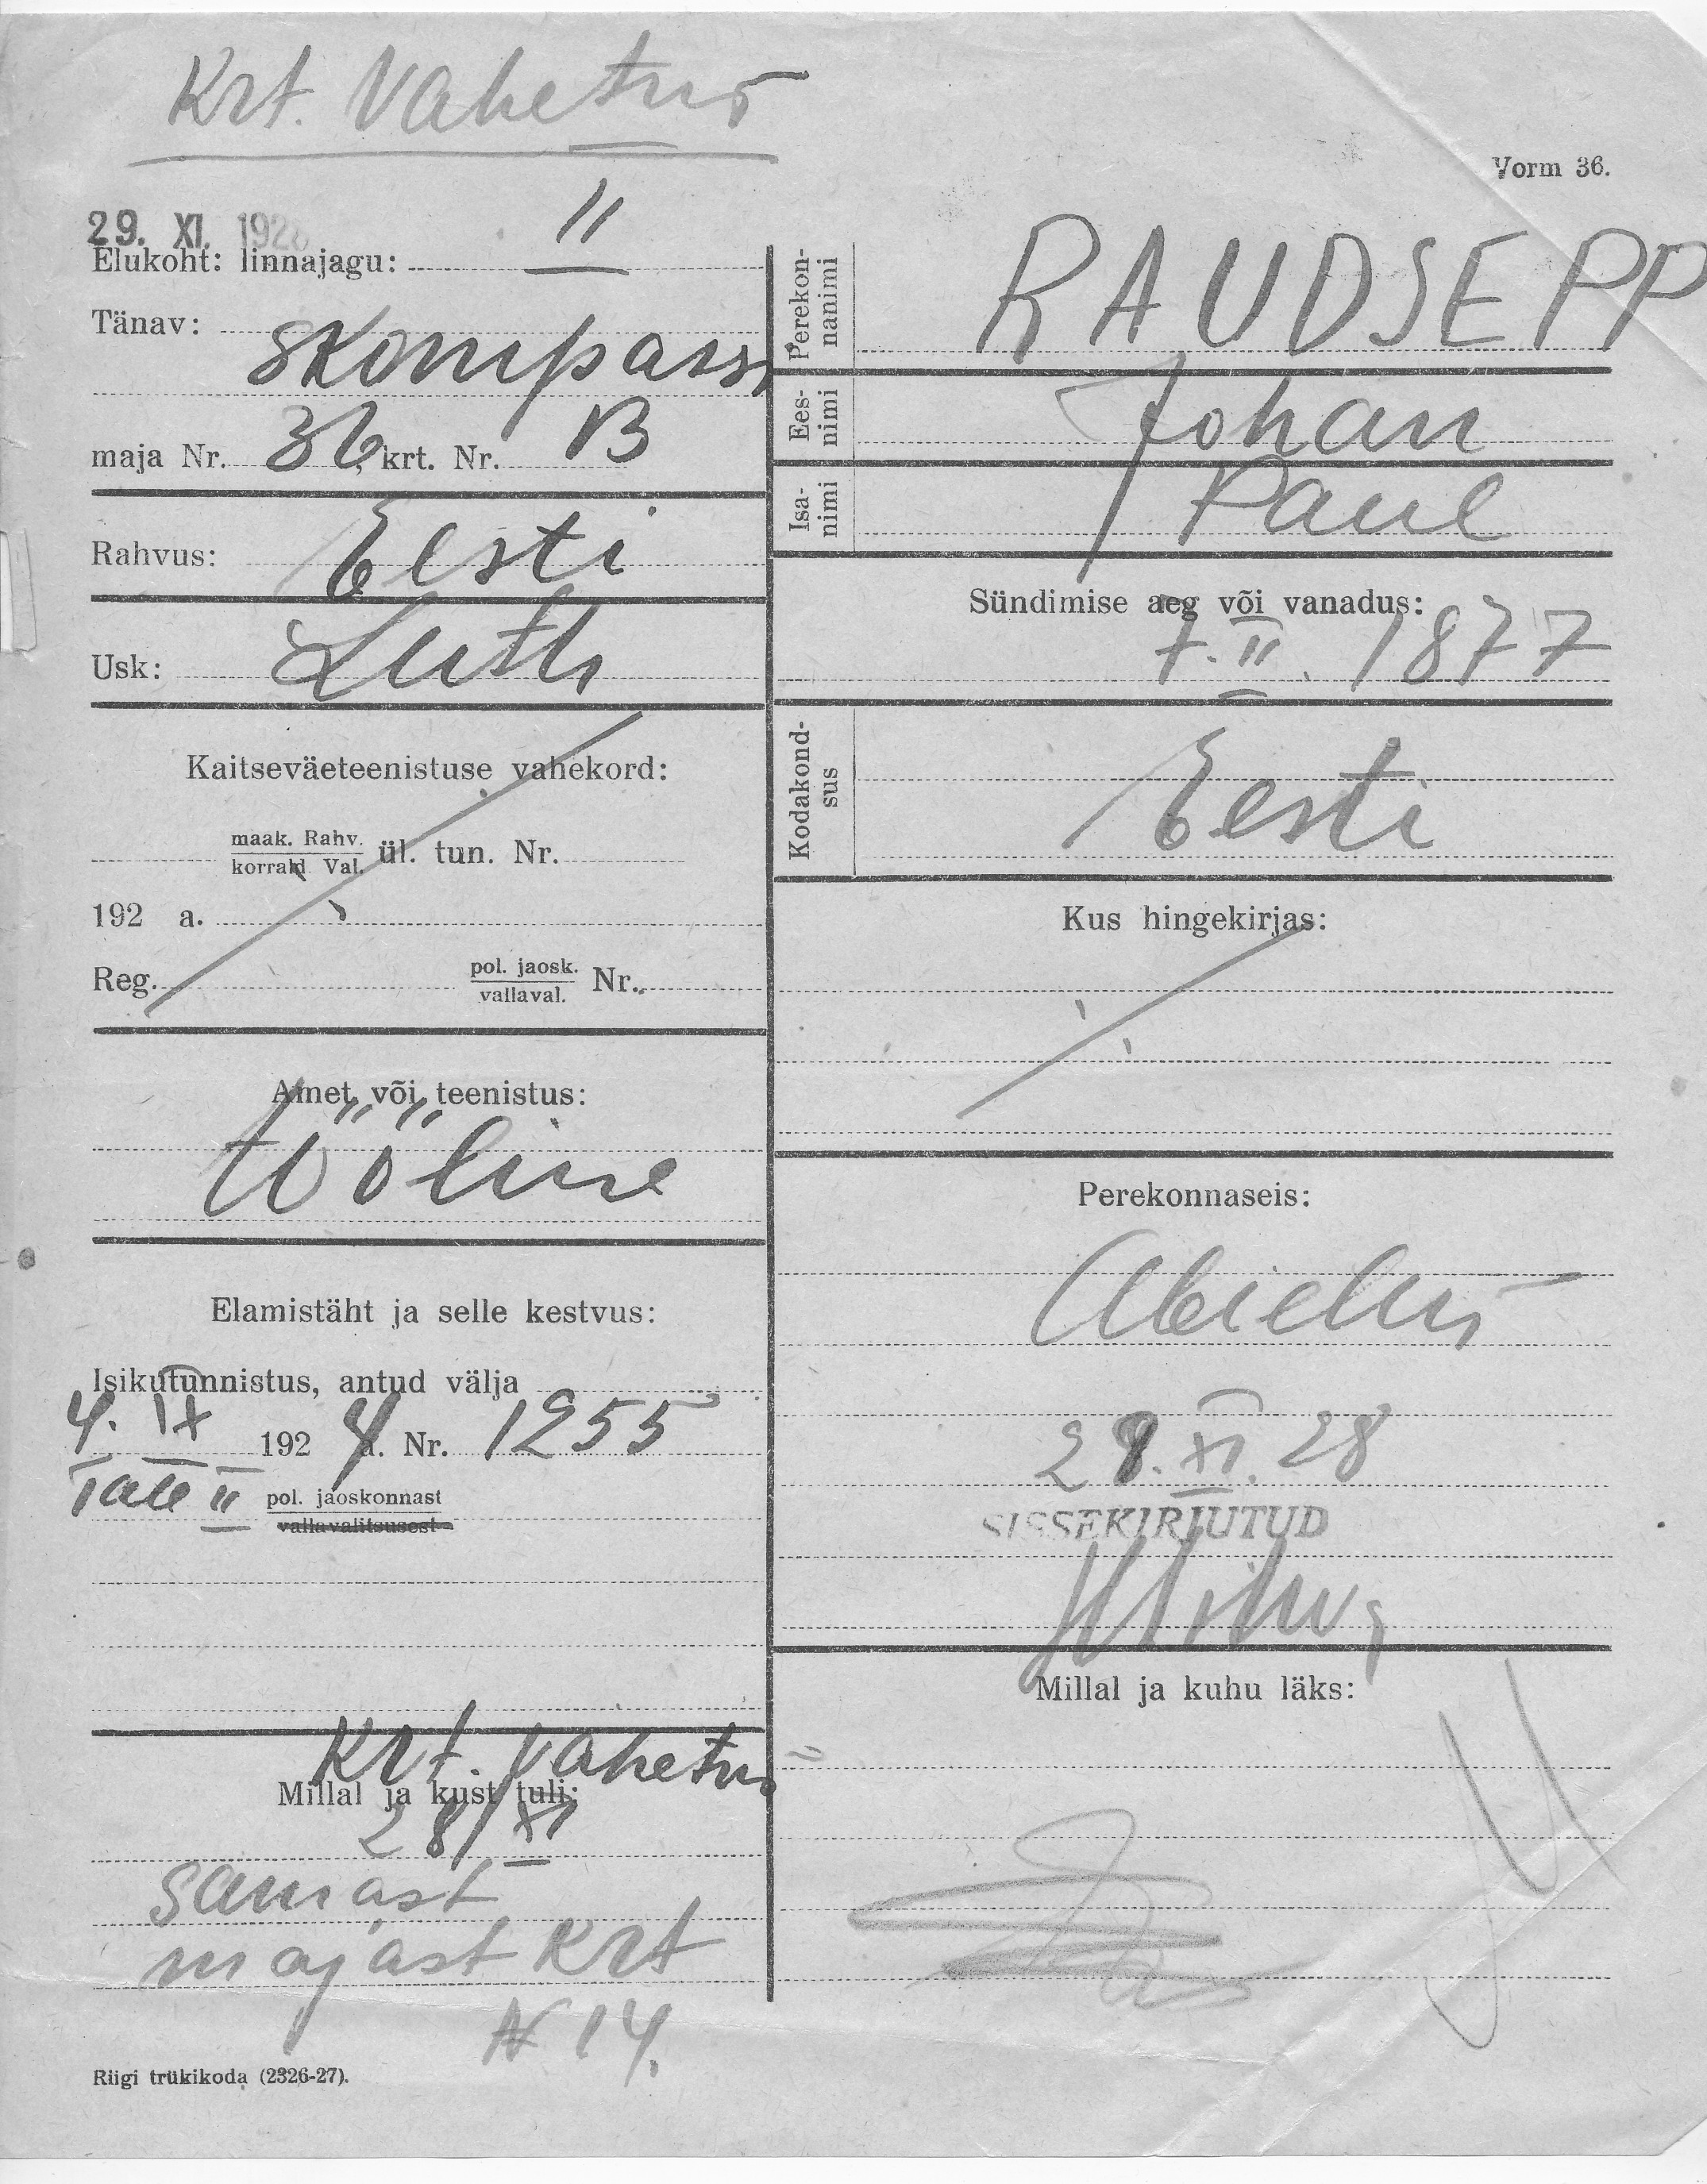 Krt. Vahetus
Vorm 36.
29. XI. 1928
Elukoht: linnajagu: II
Tänav:
Skompassi
maja Nr. 36, krt. Nr. 13
Rahvus: Eesti
Usk: Luth
Kaitseväeteenistuse vahekord:
maak. Rahv.
korrald Val. ül. tun. Nr.
192 a.
Reg. pol. jaosk.
vallaval. Nr.
Amet või teenistus:
tööline
Elamistäht ja selle kestvus:
Isikutunnistus, antud välja
4. IX 1924 a. Nr. 1255
Tall II pol. jaoskonnast
vallavalitsusest
Krt. Vahetus
Millal ja kust tuli:
28/XI
samast
majast krt
N 14.
Riigi trükikoda (2326-27).
Perekon-
nanimi
RAUDSEPP
Ees-
nimi
Johan
Isa-
nimi
Paul
Sündimise aeg või vanadus:
7. II. 1877
Kodakond-
sus
Eesti
Kus hingekirjas:
Perekonnaseis:
Abielus
29. XI. 28
SISSEKIRJUTUD
Millal ja kuhu läks: